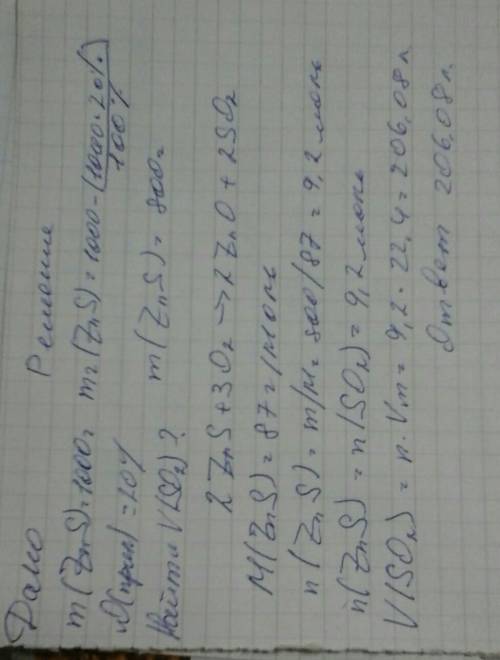 Дано
Решение
m(ZnS)=1000г
m₂(ZnS)=1000-(1000·20%)/100%
(прим)=20%
m(ZnS)=800г
Найти V(SO₂)?
2ZnS+3O₂→2ZnO+2SO₂
M(ZnS)=87г/моль
n(ZnS)=m/M=800/87=9,2моль
n(ZnS)=n(SO₂)=9,2моль
V(SO₂)=n·Vm=9,2·22,4=206,08л
Ответ 206,08л.